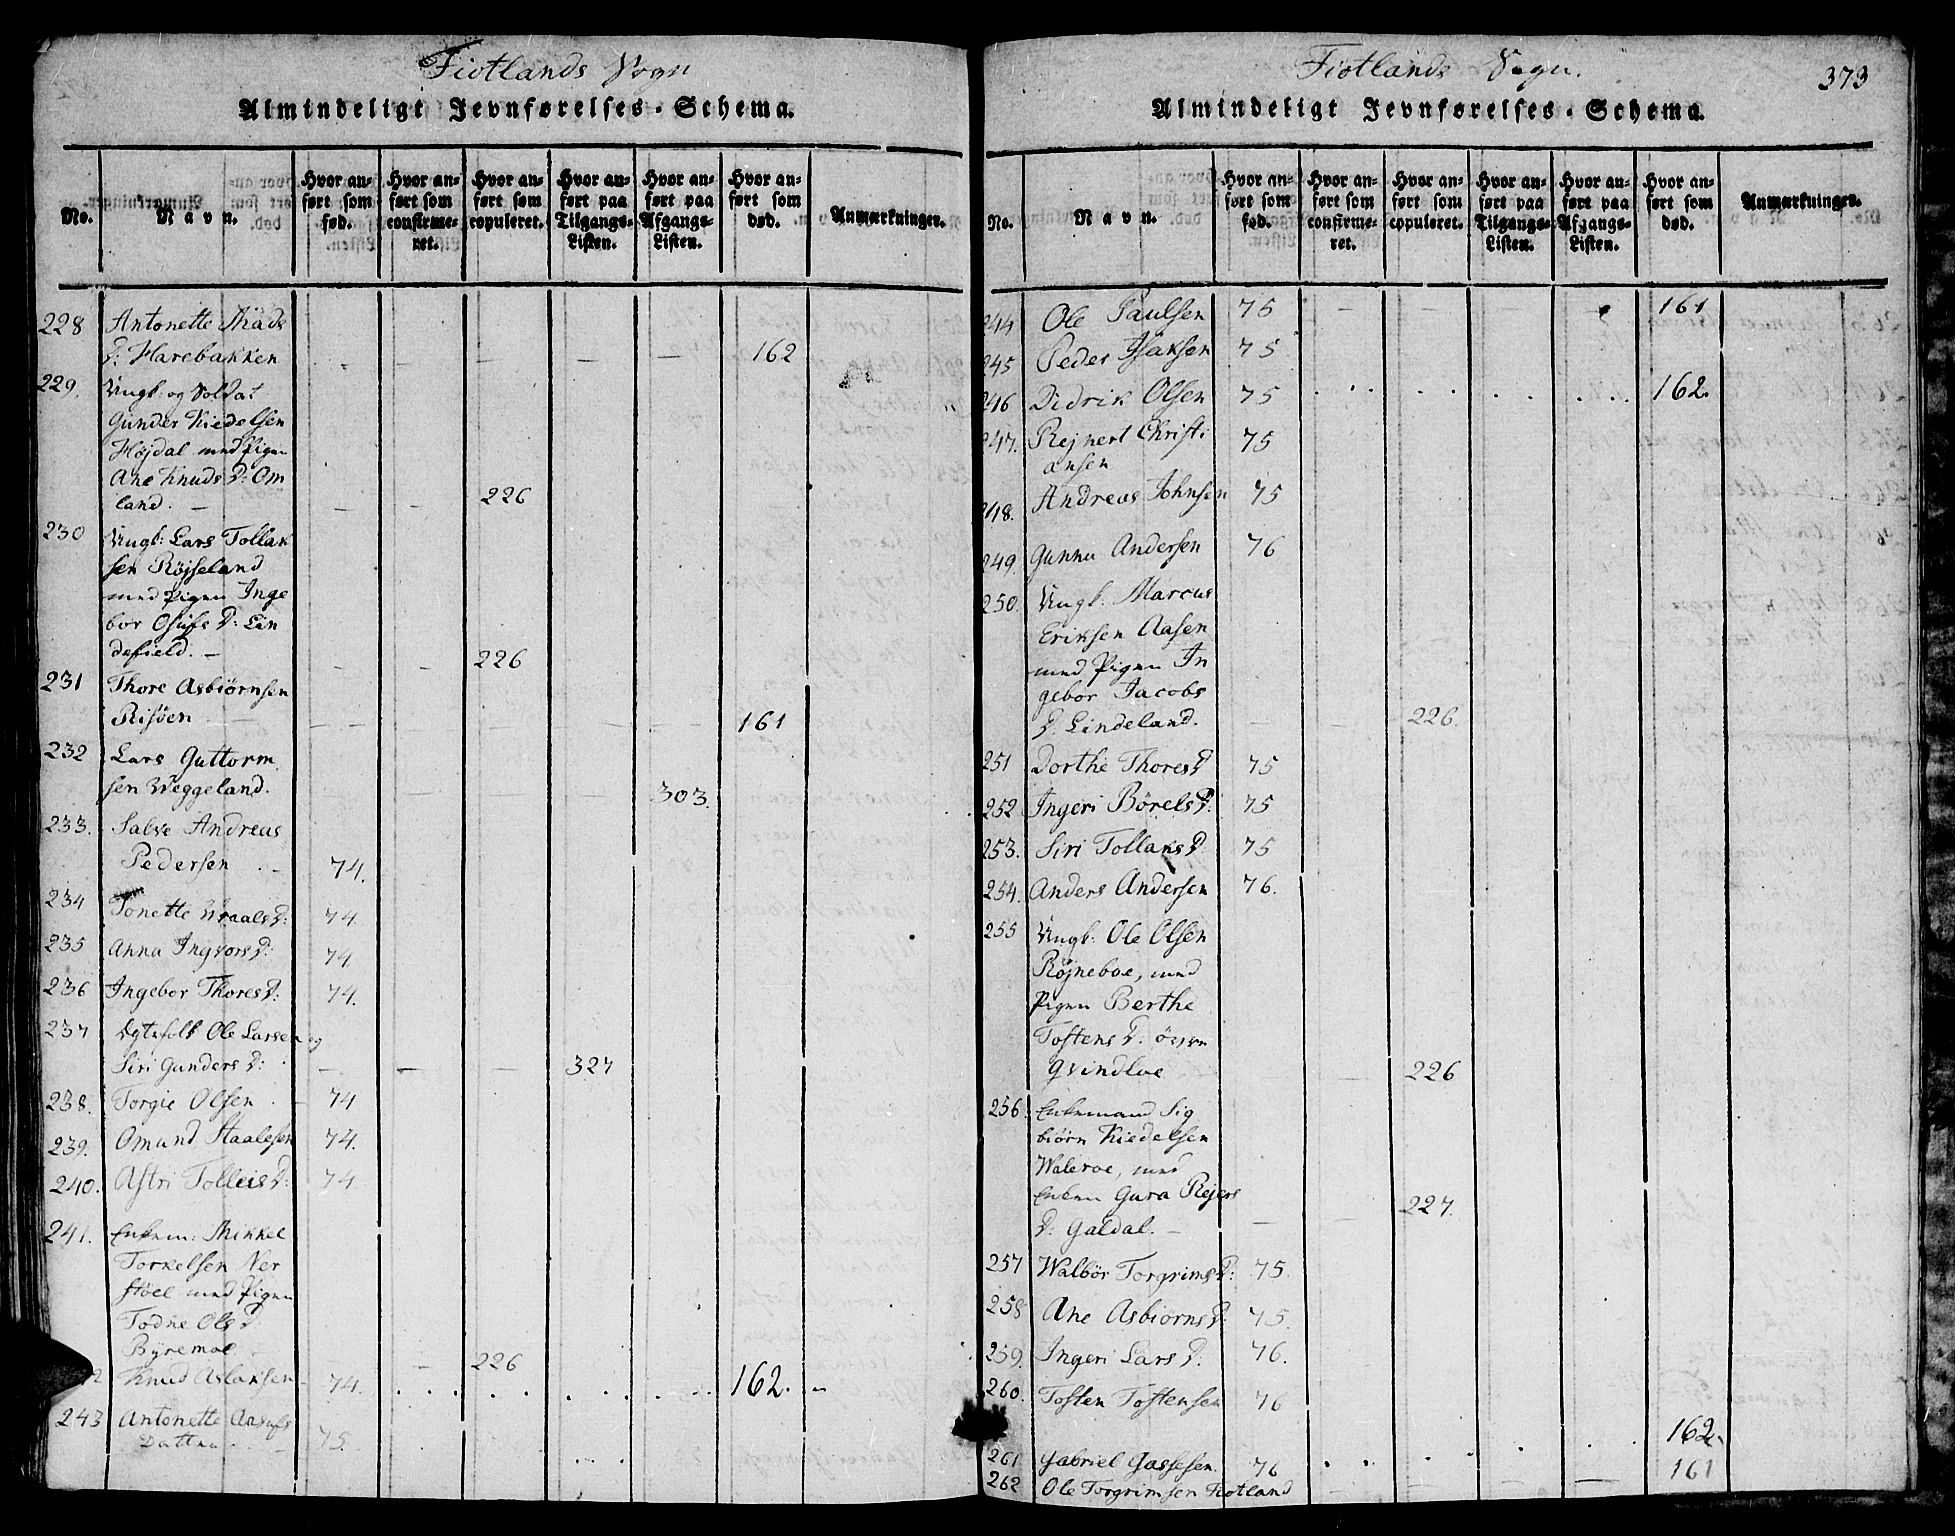 Fiotlands Sogn
Almindeligt Jevnførelses-Schema.
No.
Navn.
Hvor anført som fød.
Hvor anført som confirmeret.
Hvor anført som copuleret.
Hvor anført paa Tilgangs-Listen.
Hvor anført paa Afgangs-Listen.
Hvor anført som død.
Anmærkninger.
228 Antonette Mads
D: Harebakken — — — — — 162
229. Ungk: og Soldat
Gunder Kiedelsen
Højdal med Pigen
Ane Knuds D: Om
land. — — — 226
230 Ungk: Lars Tollak
sen Röjseland
med Pigen Inge
bor Osufs D: Lin
defield. — — — 226
231 Thore Asbiörnsen
Risöen — — — — — 161
232 Lars Guttorm
sen Weggeland. — — — — 303.
233. Salve Andreas
Pedersen 74.
234 Tonette Wraals D: 74.
235 Anna Ingvors D: 74
236 Ingebor Thores D: 74.
237 Egtefolk Ole Larsen og
Siri Gunders D: — — — 327
238. Torgie Olsen 74
239. Omund Staalesen 74.
240. Astri Tolleis D: 74
241. Enkem: Mikkel
Torkelsen Ner
stöel med Pigen
Todne Ols D
Byremoe — — 226
Knud Aslaksen 74. 162.
243 Antonette Aasufs
Datter 75.
Fiotlands Sogn.
373
Almindeligt Jevnførelses-Schema.
No.
Navn.
Hvor anført som fød.
Hvor anført som confirmeret.
Hvor anført som copuleret.
Hvor anført paa Tilgangs-Listen.
Hvor anført paa Afgangs-Listen.
Hvor anført som død.
Anmærkninger.
244 Ole Paulsen 75 — — 161
245 Peder Isaksen 75
246 Didrik Olsen 75 162.
247. Rejnert Christi
ansen 75
248. Andreas Johnsen 75
249. Gunnu Andersen 76
250. Ungk: Marcus
Eriksen Aasen
med Pigen In
gebor Jacobs
D. Lindeland. — — 226.
251 Dorthe Thores D 75
252 Ingeri Börels D: 75
253. Siri Tollaks D 75
254. Anders Andersen 76.
255 Ungk: Ole Olsen
Röjneboe, med
Pigen Berthe
Tostens D: övre
Qvindloe — 226
256. Enkemand Sig
biörn Kiedelsen
Waleroe, med
Enken Gura Rejers
D: Galdal. — — — 227.
257 Walbör Torgrims D: 75.
258 Ane Asbiörns D: 75.
259. Ingeri Lars D: 76.
260. Tosten Tostensen 76
162.
261 Gabriel Gassesen. 76 161
262 Ole Torgrimsen Fiotland